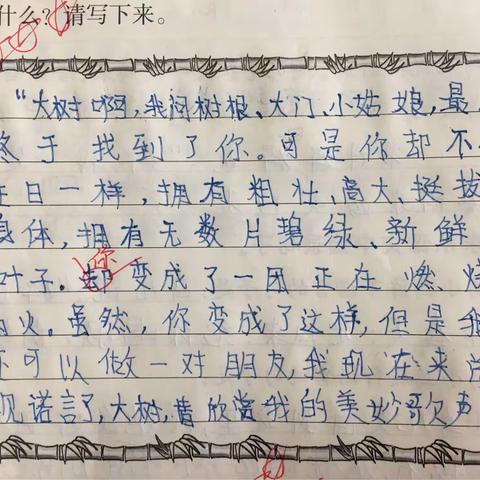 什么？请写下来。
“大树啊，我问树根、大门、小姑娘，最
终于找到了你。可是你却不
往日一样，拥有粗壮、高大、挺拔
身体，拥有无数片碧绿、新鲜
叶子。你变成了一团正在燃烧
火。虽然，你变成了这样，但是我
还可以做一对朋友，我现在来
现诺言了，大树，请欣赏我的美妙歌声